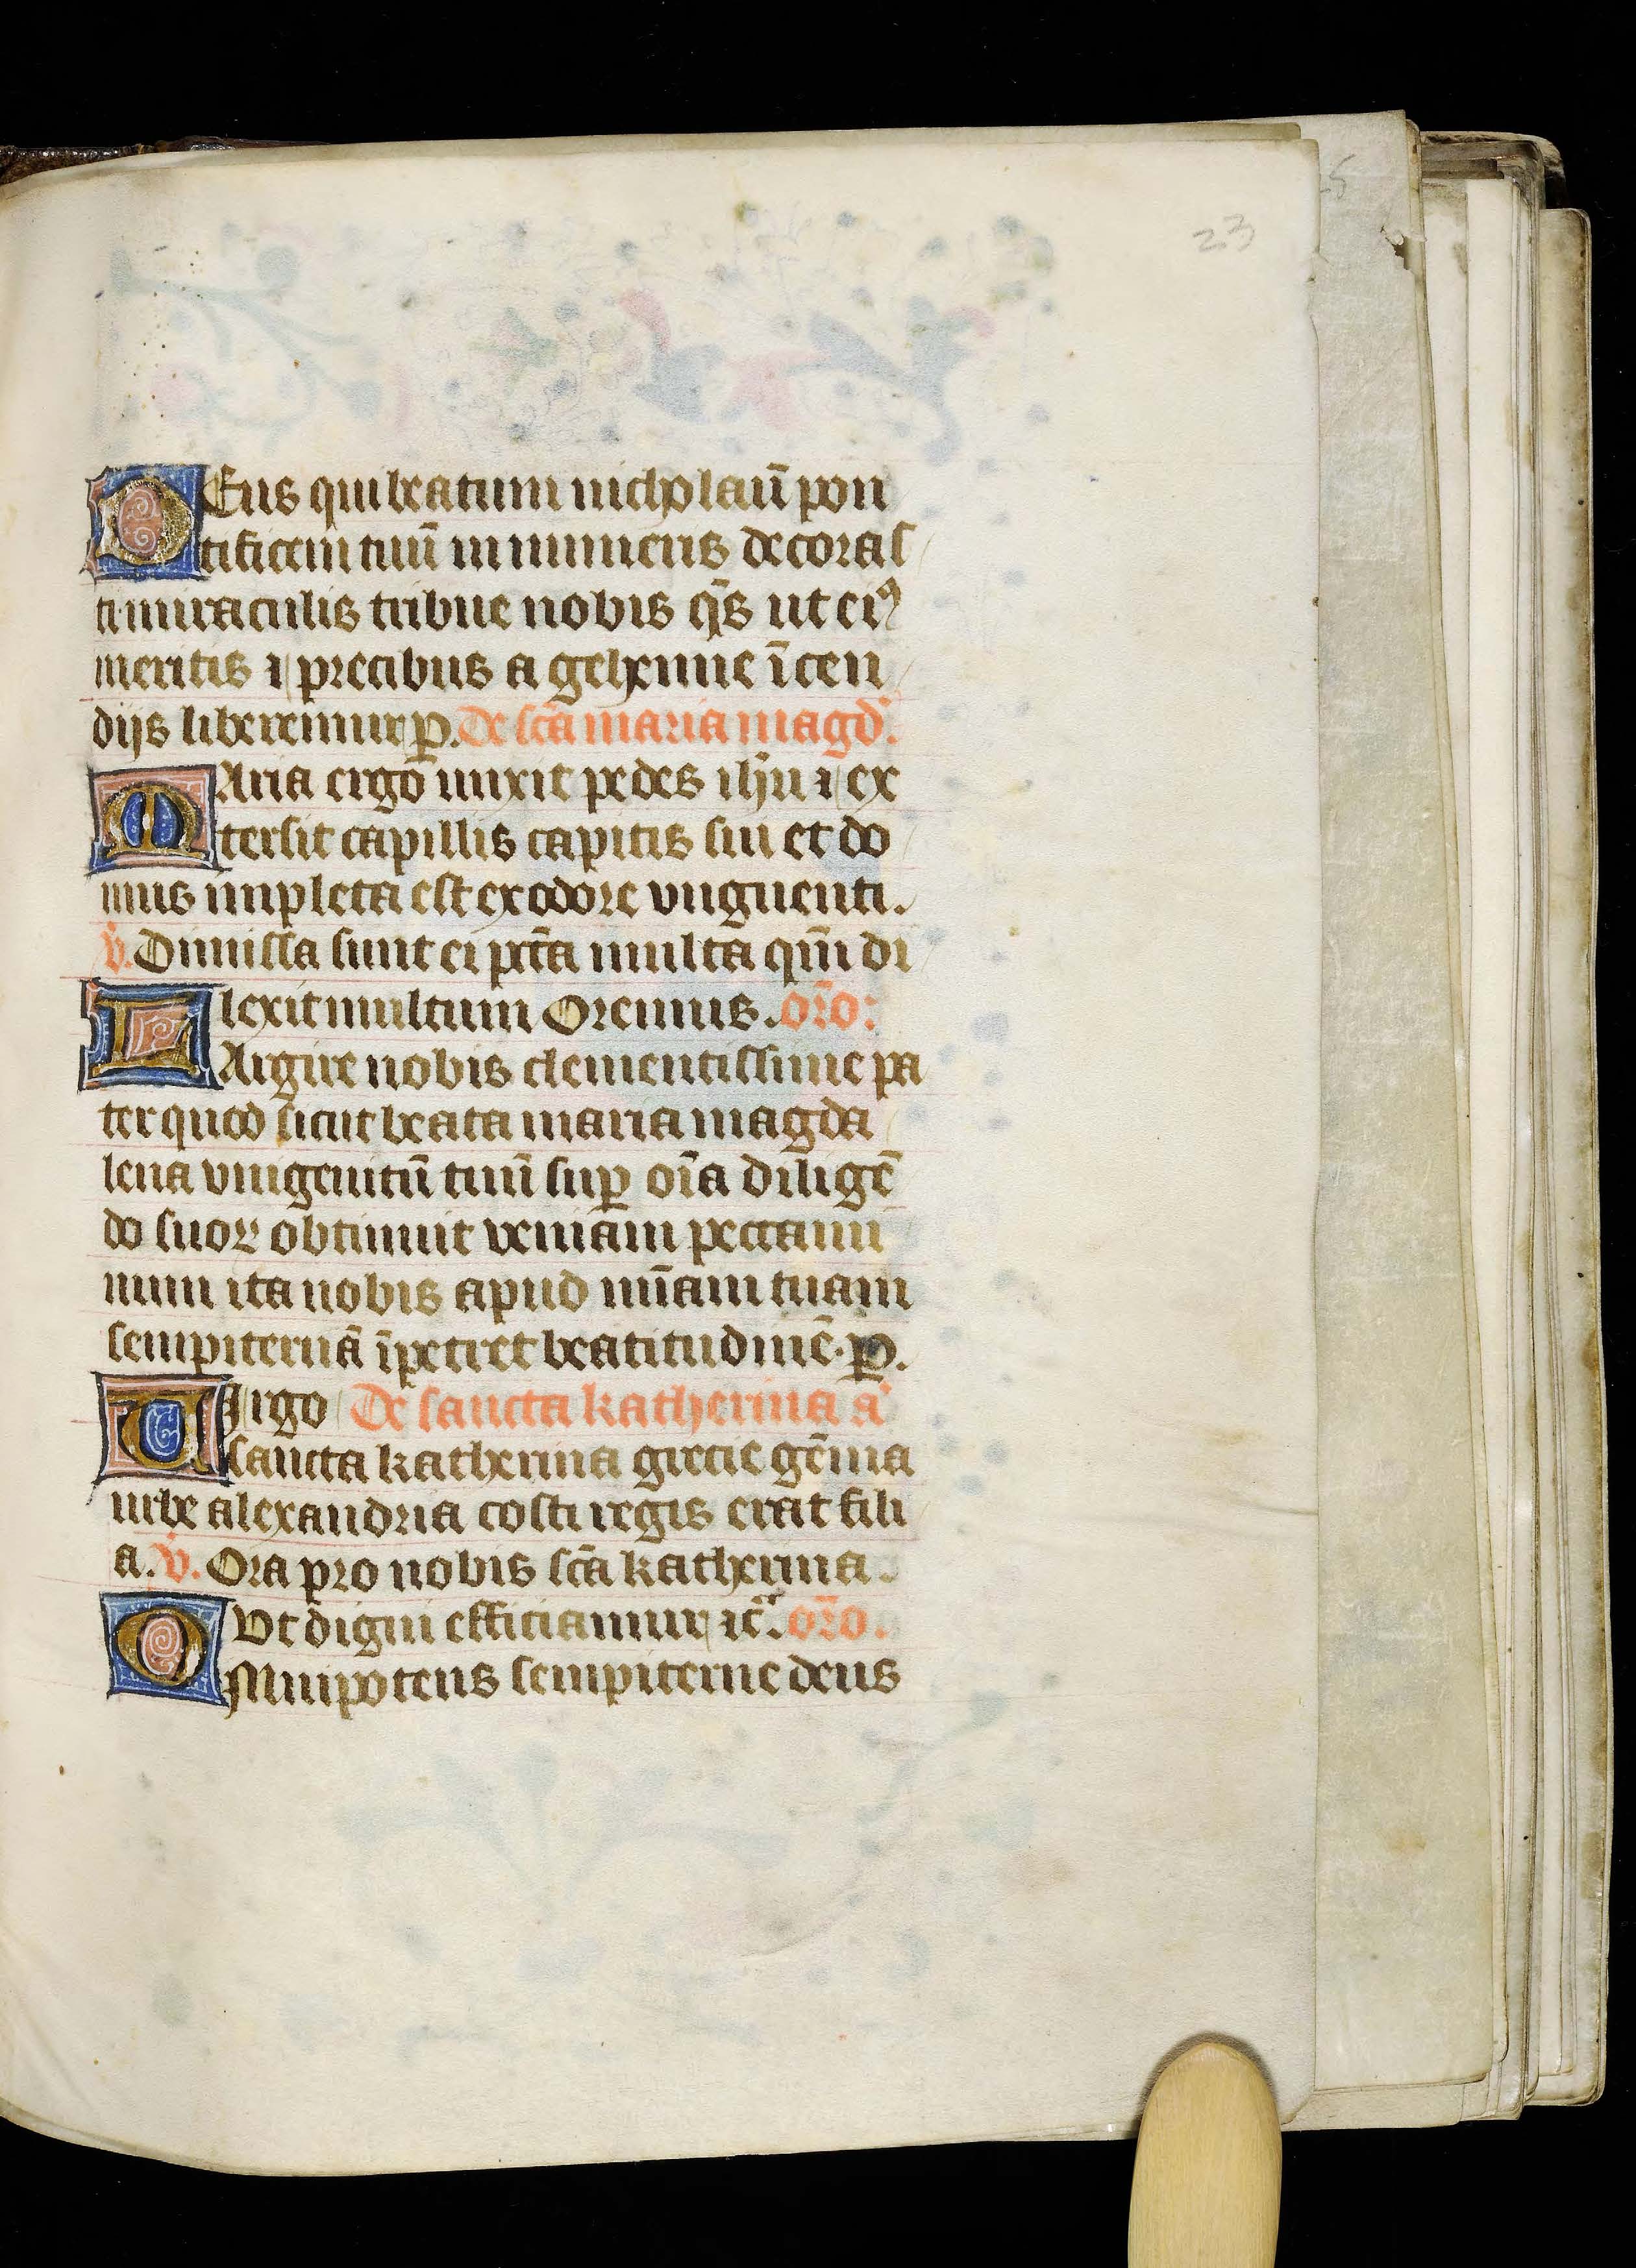 23
DEus qui beatum nicholaū pon
tificem tuū innumeris decoras
ti miraculis tribue nobis q̄s ut ei⁹
meritis ⁊ precibus a gehenne īcen
dijs liberemur p̱. De sc̄a maria magd̾.
MAria ergo unxit pedes ihū ⁊ ex
tersit capillis capitis sui et do
mus impleta est ex odore vnguenti.
v̾. Dimissa sunt ei pc̄ta multa qm̄ di
lexit multum Oremus. or̄o:
LArgire nobis clementissime pa
ter quod sicut beata maria magda
lena vnigenitū tuū suꝑ oīa diligē
do suoꝝ obtinuit veniam peccami
num ita nobis apud mīam tuam
sempiternā īpetret beatitudinē. p̱.
VIrgo De sancta katherina a̾
sancta katherina grecie gēma
urbe alexandria costi regis erat fili
a. v̾. Ora pro nobis sc̄a katherina.
Vt digni efficiamur ⁊c̄. or̄o.
OMnipotens sempiterne deus